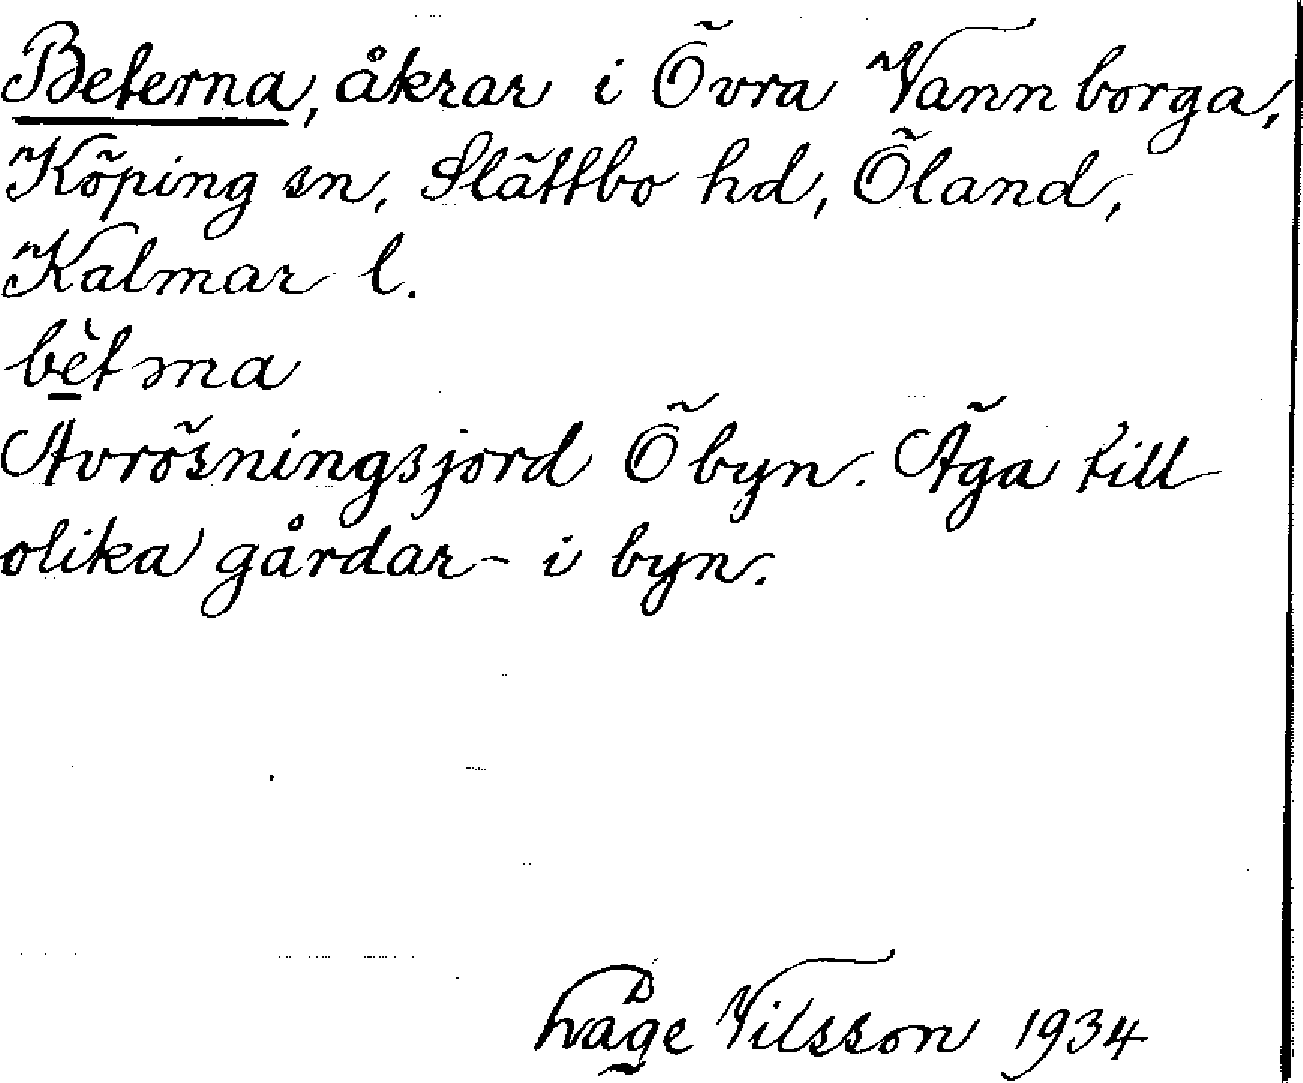 Beterna, åkrar i Övra Vannborga,
Köping sn, Slättbo hd, Öland,
Kalmar l.
bètma
Avrösningsjord Ö byn. Äga till
olika gårdar i byn.
Nilsson 1934